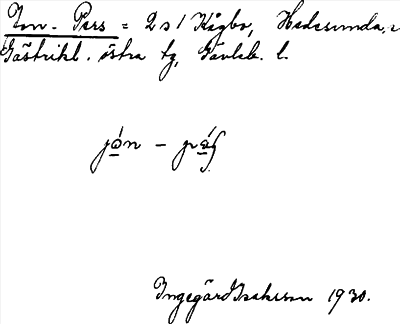 Jon-Pers = 2 s 1 Kågbo, Hedesunda,
Gästrikl. östra tg, Gävleb. l.
Ingegärd Isaksson 1930.